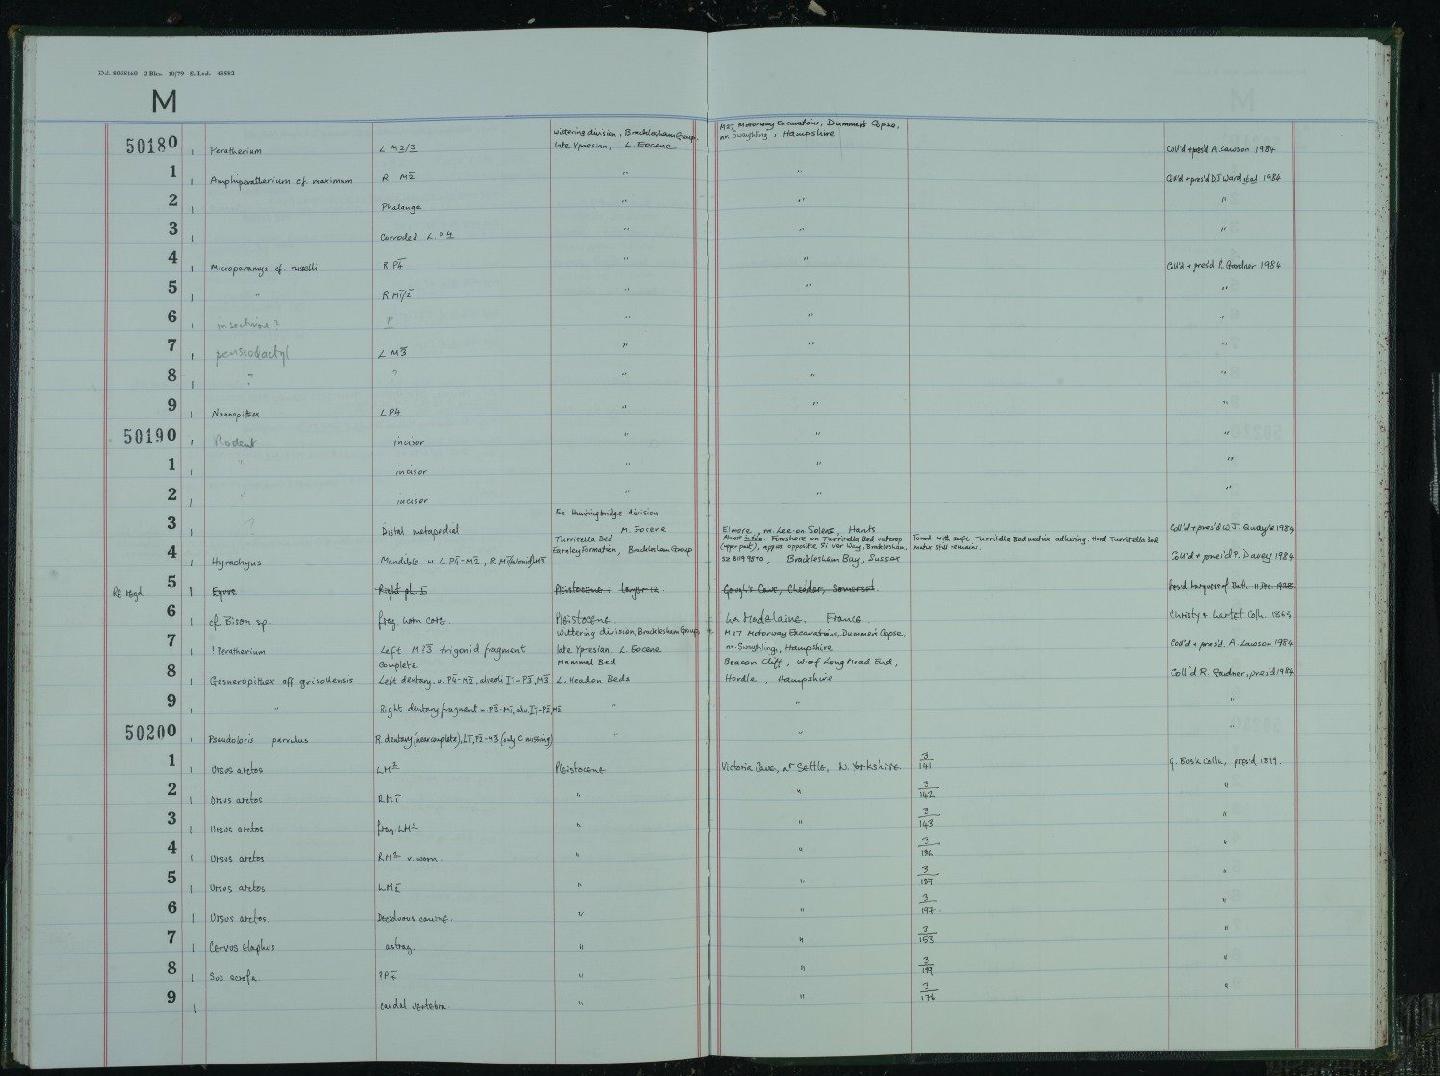 M
50180 1 Peratherium L M2/3 Wittering division, Bracklesham Group, late Ypresian, L. Eocene M27 Motorway Excavations, Dummer's Copse, nr. Swaythling, Hampshire Coll'd + pres'd A. Lawson 1984
1 1 Amphiperatherium cf. maximum R M2 " " Coll'd + pres'd D.J. Ward 1984
2 1 Phalange " " "
3 1 Corroded L. " " "
4 1 Microparamys cf. russelli R P4 " " Coll'd + pres'd R. Gardner 1984
5 1 " R M1/2 " " "
6 1 ? " " "
7 1 L M3 " " "
8 1 " ? " " "
9 1 Nannopithex L P4 " " "
50190 1 Rodent incisor " " "
1 1 " incisor " " "
2 1 " incisor " " "
3 1 ? Distal metapodial Ex Huntingbridge division M. Eocene Elmore, nr. Lee-on-Solent, Hants Coll'd + pres'd W.J. Quayle 1984
4 1 Hyrachyus Mandible w. L P4-M2, R Turritella Bed Earnley Formation, Bracklesham Group Almost in situ. Foreshore on Turritella Bed outcrop (upper part), approx opposite Silver Way, Bracklesham. SZ 8119 9570, Bracklesham Bay, Sussex Found with soft Turritella Bed matrix adhering. Hard Turritella Bed matrix still remains. Coll'd + pres'd P. Davey 1984
Re regd 5 1 Equus Right ph. I Pleistocene Layer 12. Gough's Cave, Cheddar, Somerset. Pres'd Marquess of Bath 11 Dec. 1928
6 1 cf Bison sp. frag. horn core. Pleistocene La Madelaine. France. Christy & Lartet Colln. 1863
7 1 ?Peratherium Left M?3 trigonid fragment Wittering division, Bracklesham Group, late Ypresian. L. Eocene M27 Motorway Excavations, Dummer's Copse, nr. Swaythling, Hampshire Coll'd + pres'd. A. Lawson 1984
8 1 Gesneropithex aff grisollensis Complete Left dentary w. P4-M2, alveoli I1-P3, M3 Mammal Bed L. Headon Beds Beacon Cliff, W. of Long Mead End, Hordle, Hampshire Coll'd R. Gardner, pres'd 1984
9 1 " Right dentary fragment w. P3-M1, alv. I1-P2, M2 " " "
50200 1 Pseudoloris parvulus R. dentary (near complete), I1, P2-M3 (only C missing) " " "
1 1 Ursus arctos LM2 Pleistocene Victoria Cave, nr Settle, N. Yorkshire. 3/141 G. Busk Colln, pres'd. 1819.
2 1 Ursus arctos RM1 " " 3/142 "
3 1 Ursus arctos frag. LM2 " " 3/143 "
4 1 Ursus arctos RM2 v. worn. " " 3/196 "
5 1 Ursus arctos LM2 " " 3/187 "
6 1 Ursus arctos. Deciduous canine. " " 3/197. "
7 1 Cervus elaphus astrag. " " 3/153 "
8 1 Sus scrofa ?P2 " " 3/199 "
9 1 caudal vertebra. " " 3/176 "